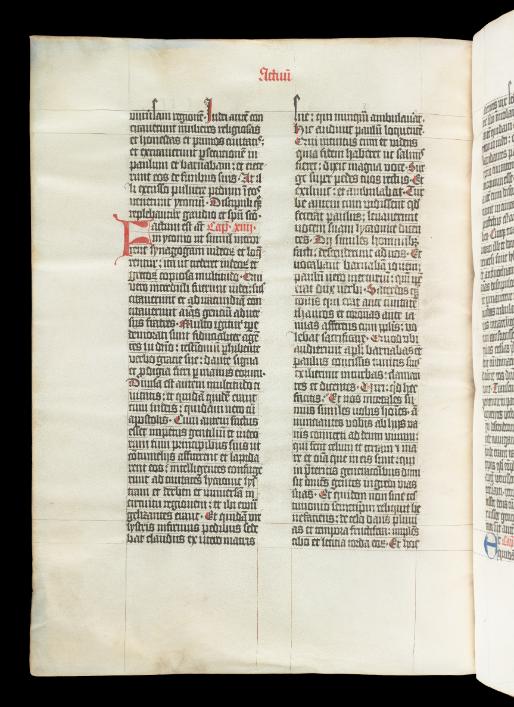 Actuū
uniuersam regionē· Iudei autē con
citauerunt mulieres religiosas
et honestas et primos ciuitatis·
et excitauerunt psecutionē in
paulum et barnabam· et eiece
runt eos de finibus suis· At il
li excusso puluere pedum ī eos
uenerunt yconiū· Discipuli qꝫ
replebantur gaudio et spū sčo·
Factum est aūt Capl̄· xiiii·
in yconio ut simul introi
rent synagogam iudeor et loq̄
rentur· ita ut crederet iudeor et
grecor copiosa multitudo· Qui
uero increduli fuerunt iudei· sus
citauerunt et ad iracundiam con
citauerunt aīas gentiū aduer
sus fratres· Multo igitur tpe
demorati sunt fiducialiter agē
tes in dño· testimoniū phibente
uerbo gracie sue· dante signa
et pdigia fieri p manus eorum·
Diuisa est autem multitudo ci
uitatis· et quidā quidē erant
cum iudeis· quidam uero cū
apostolis· Cum autem factus
esset impetus gentiliū et iudeo
rum cum principibus suis ut
contumelijs afficerent et lapida
rent eos· intelligentes confuge
runt ad ciuitates lycaonie lys
tram et derben et uniuersā in
circuitu regionem· et ibi ewā
gelizantes erant· Et quidam uir
lystris infirmus pedibus sede
bat claudus ex utero matris
sue· qui nunqm̄ ambulauerat·
Hic audiuit paulū loquentē·
Qui intuitus eum et uidens
quia fidem haberet ut saluus
fieret· dixit magna uoce· Sur
ge super pedes tuos rectus· Et
exiliuit· et ambulabat· Tur
be autem cum uidissent qd
fecerat paulus· leuauerunt
uocem suam lycaonice dicen
tes· Dij similes hominibꝫ
facti· descenderūt ad nos· Et
uocabant barnabā iouem·
paulū uero mercuriū· qm̄ ip̄e
erat dux uerbi· Sacerdos qꝫ
iouis qui erat ante ciuitatē
thauros et coronas ante ia
nuas afferens cum pplis· uo
lebat sacrificare· Quod ubi
audierunt apli· barnabas et
paulus concissis tunicis suis
exilierunt in turbas· claman
tes et dicentes· Uiri· qd hec
facitis· Et nos mortales su
mus similes uobis hoīes· ā
nunciantes uobis ab hijs ua
nis conuerti ad deum uiuum·
qui fecit celum et terram et ma
re et oīa que in eis sunt· qui
in pteritis generationibus dimi
sit omēs gentes ingredi uias
suas· Et quidem non sine tes
timonio semetipm̄ reliquit be
nefaciens· de celo dans pluui
as et tempora fructifera· implēs
cibo et leticia corda eor· Et hec